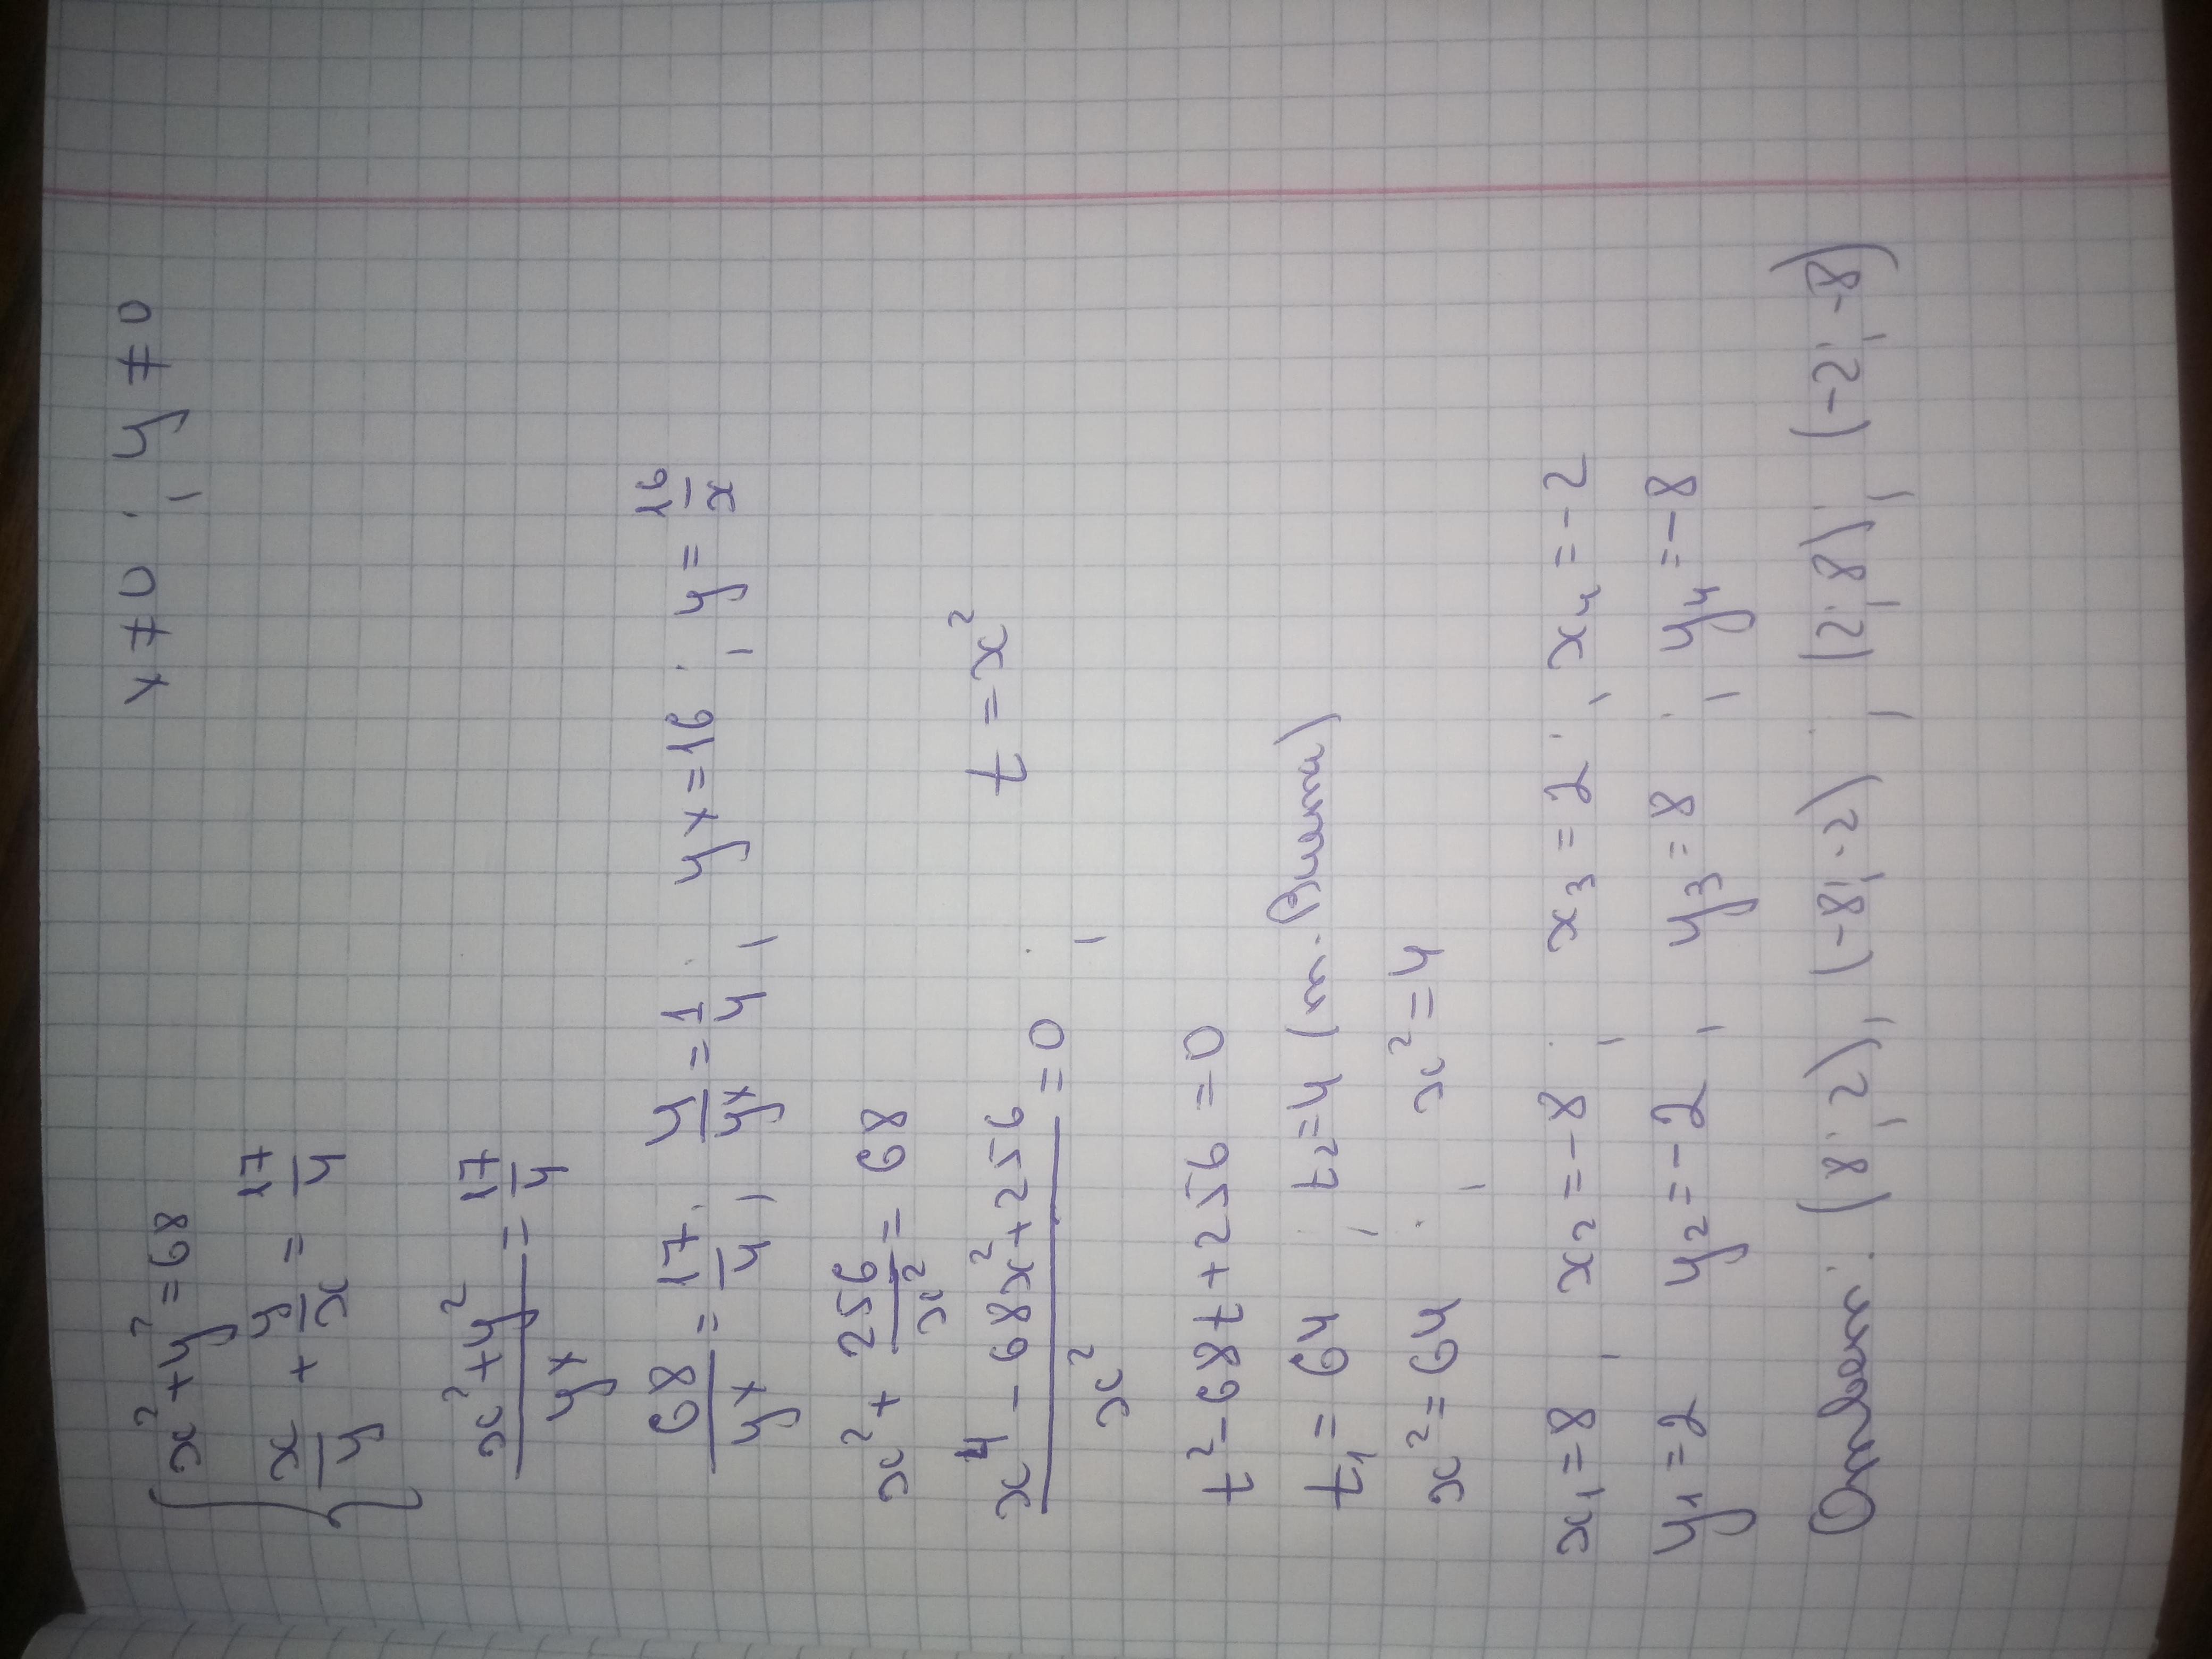 { x² + y² = 68 x ≠ 0 ; y ≠ 0
x/y + y/x = 17/4
(x² + y²)/yx = 17/4
68/yx = 17/4 ; 4/yx = 1/4 ; yx = 16 ; y = 16/x
x² + 256/x² = 68
(x⁴ - 68x² + 256)/x² = 0 ; t = x²
t² - 68t + 256 = 0
t₁ = 64 ; t₂ = 4 (т. Виета)
x² = 64 ; x² = 4
x₁ = 8 ; x₂ = -8 ; x₃ = 2 ; x₄ = -2
y₁ = 2 y₂ = -2 ; y₃ = 8 ; y₄ = -8
Ответ: (8; 2); (-8; -2) ; (2; 8); (-2; -8)